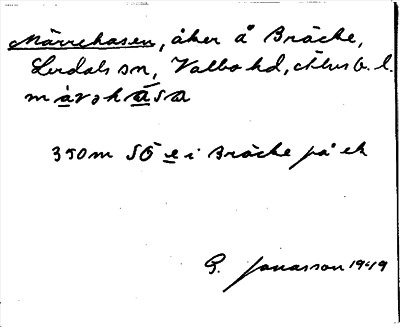 Märrehasen, åker å Bräcke,
Lerdals sn, Valbo hd, Älvsb. l.
màrəhása
350m SÖ e i Bräcke på ek
G. Jonasson 1949